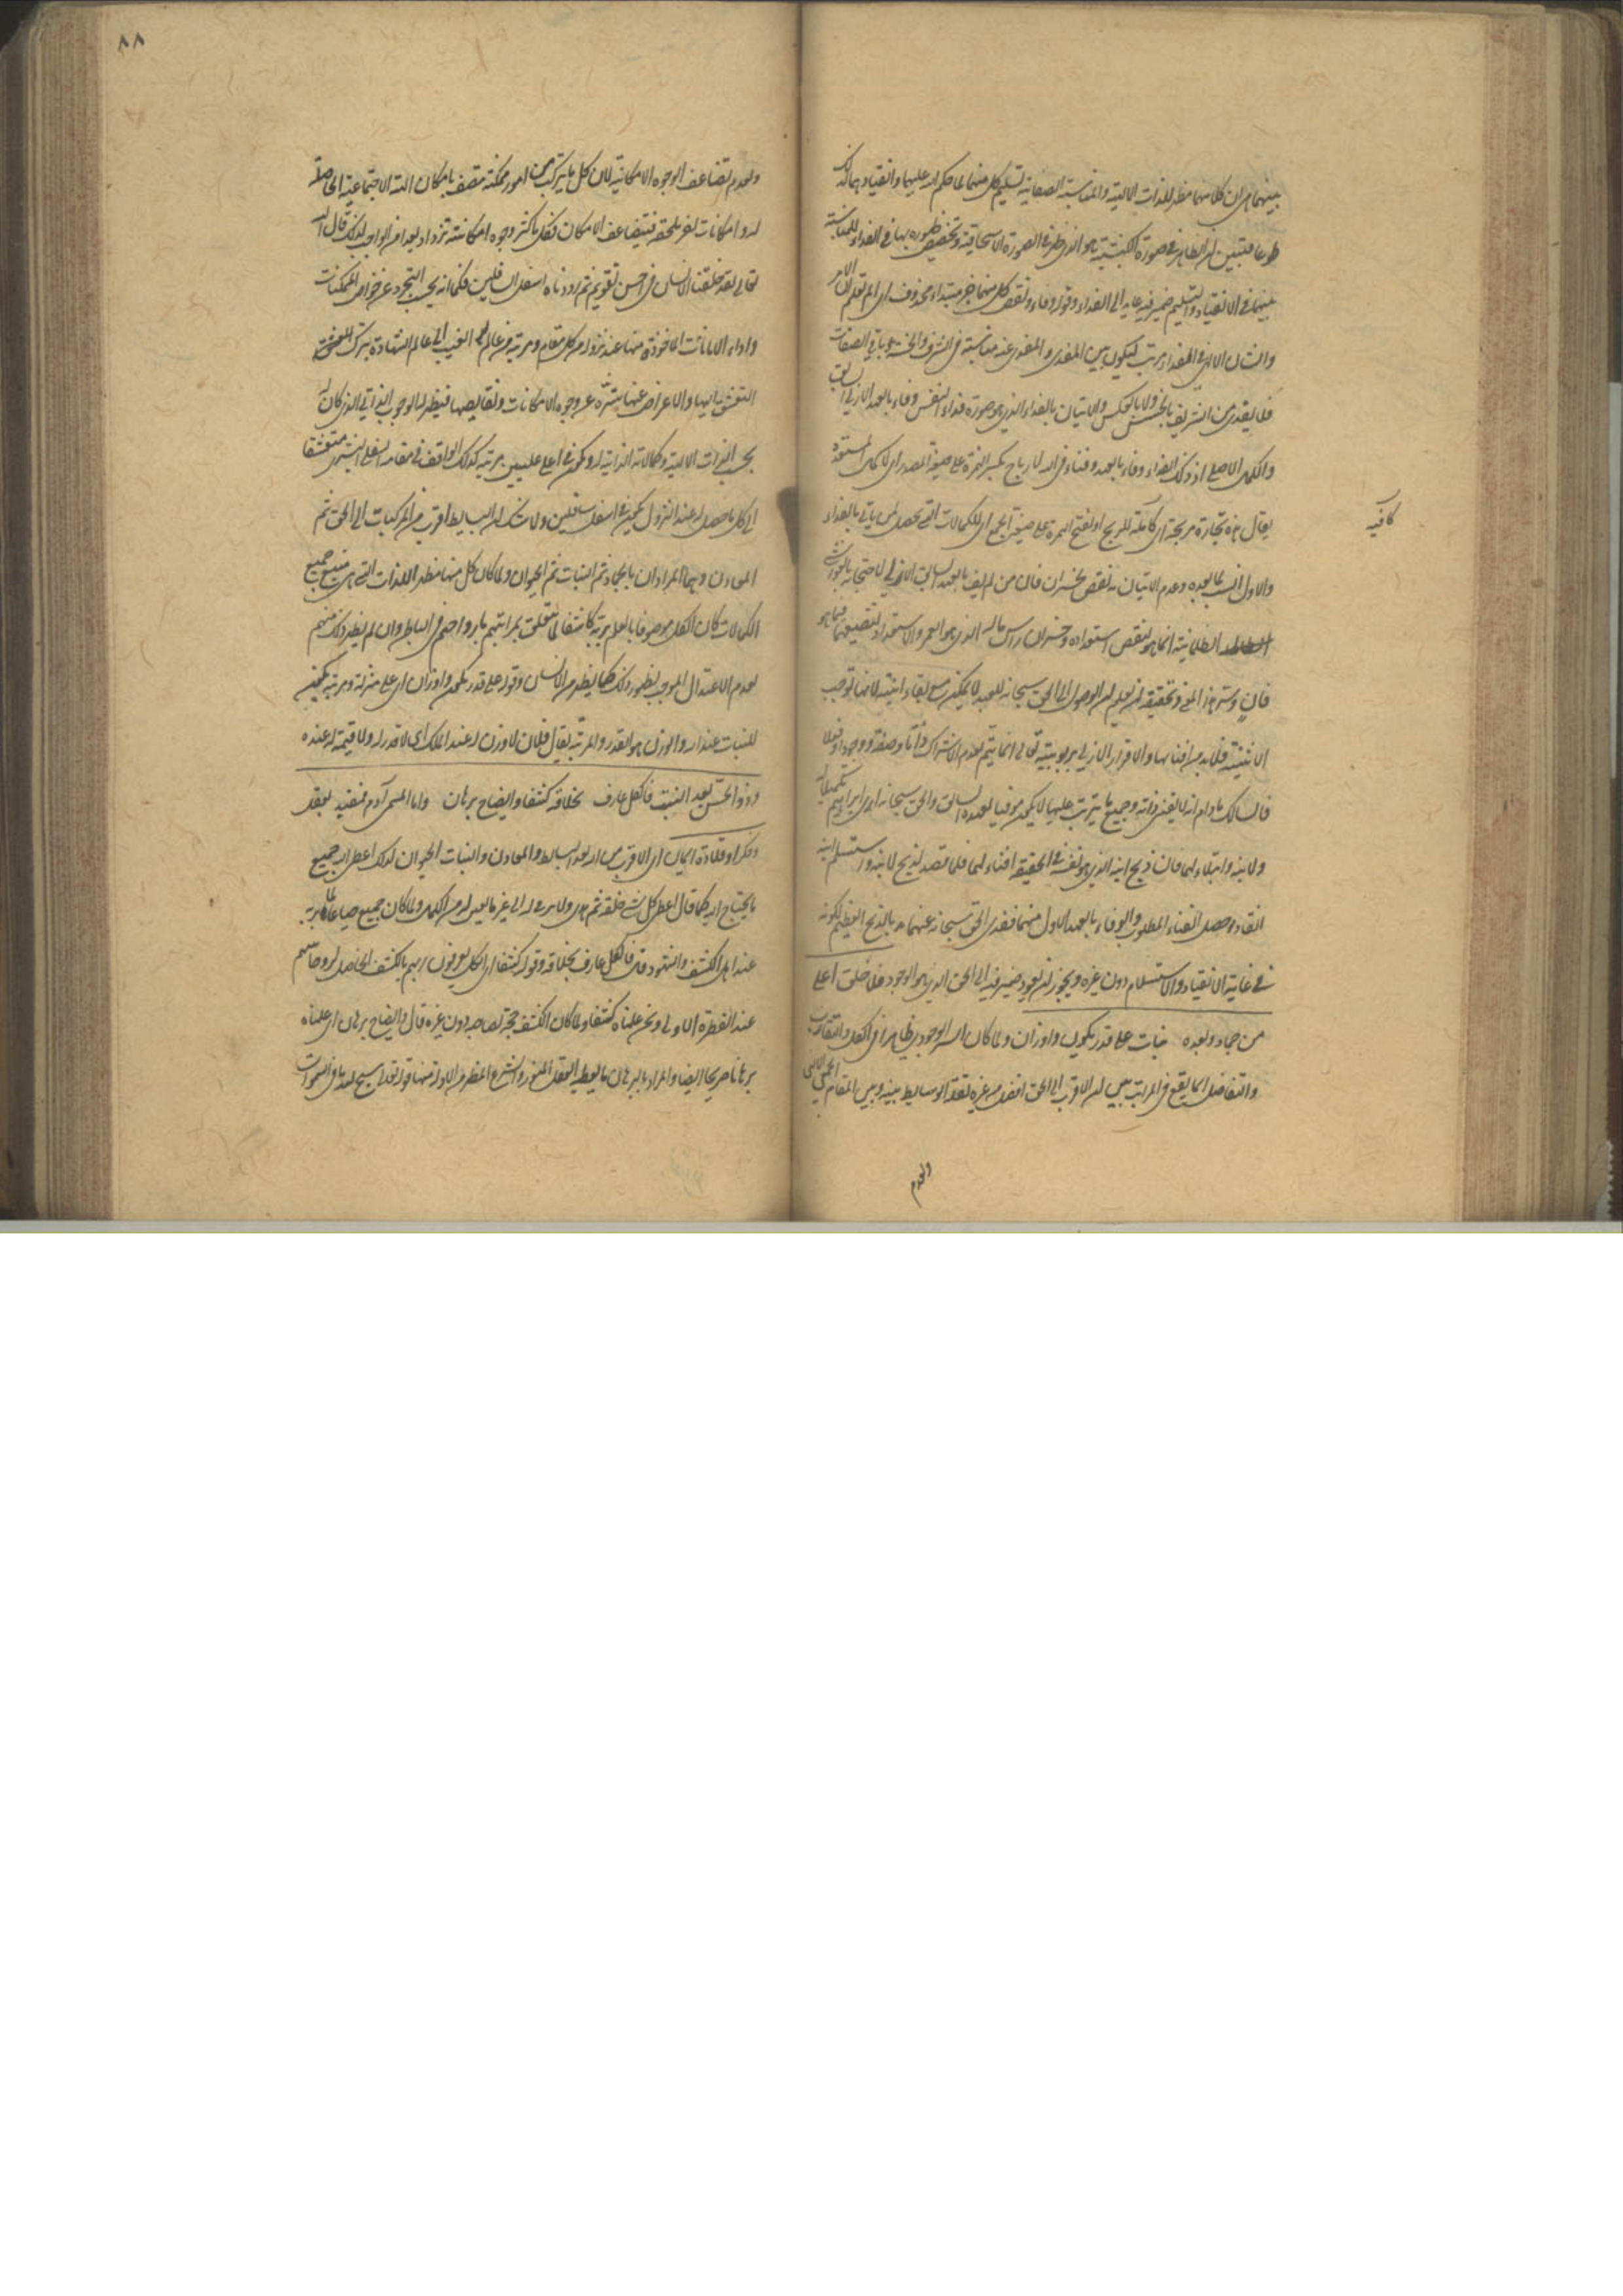 بينهما هي ان كلا منهما مظهر للذات الالهية والمناسبة الصفاتية تسليم كل منهما لما حكم الله عليهما وانقيادهما لذلك
طوعا فتبين ان الظاهر في صورة الكبشية هو الذي ظهر في الصورة الاسحاقية وتخصيص ظهوره بها في الفداء للمناسبة
بينهما في الانقياد والتسليم ضمير فيه عايد الى الفداء وقوله وفاء ونقص كل منهما خبر مبتداء محذوف اي الم تعلم ان الامر
والشان الالهي في الفداء مرتب ليكون بين المفدي والمفدى عنه مناسبة في الشرف والخسة وباقي الصفات
فلا يفدى من الشريف بالخسيس ولا بالعكس والاتيان بالفداء الذي هو صورة فداء النفس وفاء بالعهد الازلي السابق
والكلي الاصلي اذ ذلك الفداء وفاء بالعهد وفناء في الله لارباح بكسر الهمزة على صيغة المصدر اي لا كمال المستعد
يقال هذه تجارة مربحة اي كافية للربح او بفتح الهمزة على صيغة الجمع اي للكمالات التي تحصل لمن ياتي بالفداء
كافية
والاول انسب لما بعده وعدم الاتيان به نقص لخسران فان من لم يف بالعهد السابق الازلي لاحتجابه بالغواشي
الظلمانية انما هو لنقص استعداده وخسران راس ماله الذي هو العمر والاستعداد لتضييعهما فيما هو
فان وستر هذا المعنى وتحقيقه ان يعلم ان الوصول الى الحق سبحانه للعبد لا يمكن مع بقاء انيته لانها توجب
الاثنينية فلا بد من افنائها والاقرار الازلي بربوبيته تعالى انما يتم بعدم الاشراك ذاتا وصفة ووجودا وفعلا
فالسالك مادام انه لا يفني ذاته وجميع ما يترتب عليها لا يكون موفيا لعهده السابق والحق سبحانه ارى ابراهيم تكميلا له
ولابنه وابتلاء لهما فان ذبح ابنه الذي هو نفسه في الحقيقة افناء لهما فلما قصد لذبح لابنه واستسلم ابنه
انقاد وحصل الفناء المطلوب والوفاء بالعهد الاول منهما ففدى الحق سبحانه عنهما بالذبح العظيم لكونه
في غاية الانقياد والاستسلام دون غيره ويجوز ان يعود ضمير فيه الى الحق الذي هو الوجود فلا خلق اعلى
من جماد وبعده نبات على قدر يكون واوزان ولما كان السر الوجودي ظاهرا في الكل والتفاوت
والتفاضل انما يقع في المراتب بين ان الاقرب الى الحق افضل من غيره لقلة الوسايط بينه وبين المقام الجمعي الالهي
ولعدم
٨٨
ولعدم تضاعف الوجوه الامكانية لان كل ما يتركب من امور ممكنة متصف بامكان الهيئة الاجتماعية الحاصلة
له وامكانات اخر يلحقه فيتضاعف الامكان فكل ما كثر وجوه امكانه تزداد بعدا من الواجب لذلك قال الله
تعالى لقد خلقنا الانسان في احسن تقويم ثم رددناه اسفل السافلين فكما انه يجب التجرد عن خواص الممكنات
واداء الامانات الماخوذة منها عند نزوله من كل مقام ومرتبة من عالم الغيب الى عالم الشهادة بترك التعشق
اليها والاعراض عنها ينزه عن وجوه الامكانات ونقايصها فيظهر له الوجوب الذاتي الذي كان له
بحسب الذات الالهية وكمالاته الذاتية له ويكون في اعلى عليين مرتبة كذلك الواقف في مقامه السفلي البشري متعشقا
الى كل ما حصل له عند النزول يكون في اسفل سافلين ولا شك ان البسايط اقرب من المركبات الى الحق ثم
المعادن وهما المرادان بالجماد ثم النبات ثم الحيوان ولما كان كل منها مظهرا للذات التي هي منبع جميع
الكمالات كان الكل موصوفا بالعلم بربه كاشفا لما تعلق بمراتبهم بارواحهم في الباطن وان لم يظهر ذلك منهم
لعدم الاعتدال الموجب لظهور ذلك كما يظهر من الانسان وقوله على قدر يكون واوزان اي على منزلة ومرتبة يكون
للنبات عند الله والوزن هو القدر والمرتبة يقال فلان لا وزن له عند الملك اي لا قدر له ولا قيمة له عنده
وذو الحس بعد النبت فالكل عارف بخلاقه كشفا وايضاح برهان واما المسمى آدم فمقيد بعقل
وفكر او قلادة ايمان اي الاقرب من الله بعد البسايط والمعادن والنبات الحيوان لذلك اعطى الله جميع
ما يحتاج اليه كما قال اعطى كل شيء خلقه ثم هدى ولا يرى له الى غير ما تعين له من الكمال ولما كان جميع حيا عالما بربه
عند اهل الكشف والشهود قال فالكل عارف بخلاقه وقوله كشفا اي الكل يعرفون ربهم بالكشف الحاصل لارواحهم
عند الفطرة الاولى ونحن علمناه كشفا ولما كان الكشف حجة لصاحبه دون غيره قال وايضاح برهان اي علمناه
برهانا صريحا ايضا والمراد بالبرهان ما يعطيه العقل المنور والشرع المطهر من الادلة منها قوله تعالى سبح لله ما في السموات